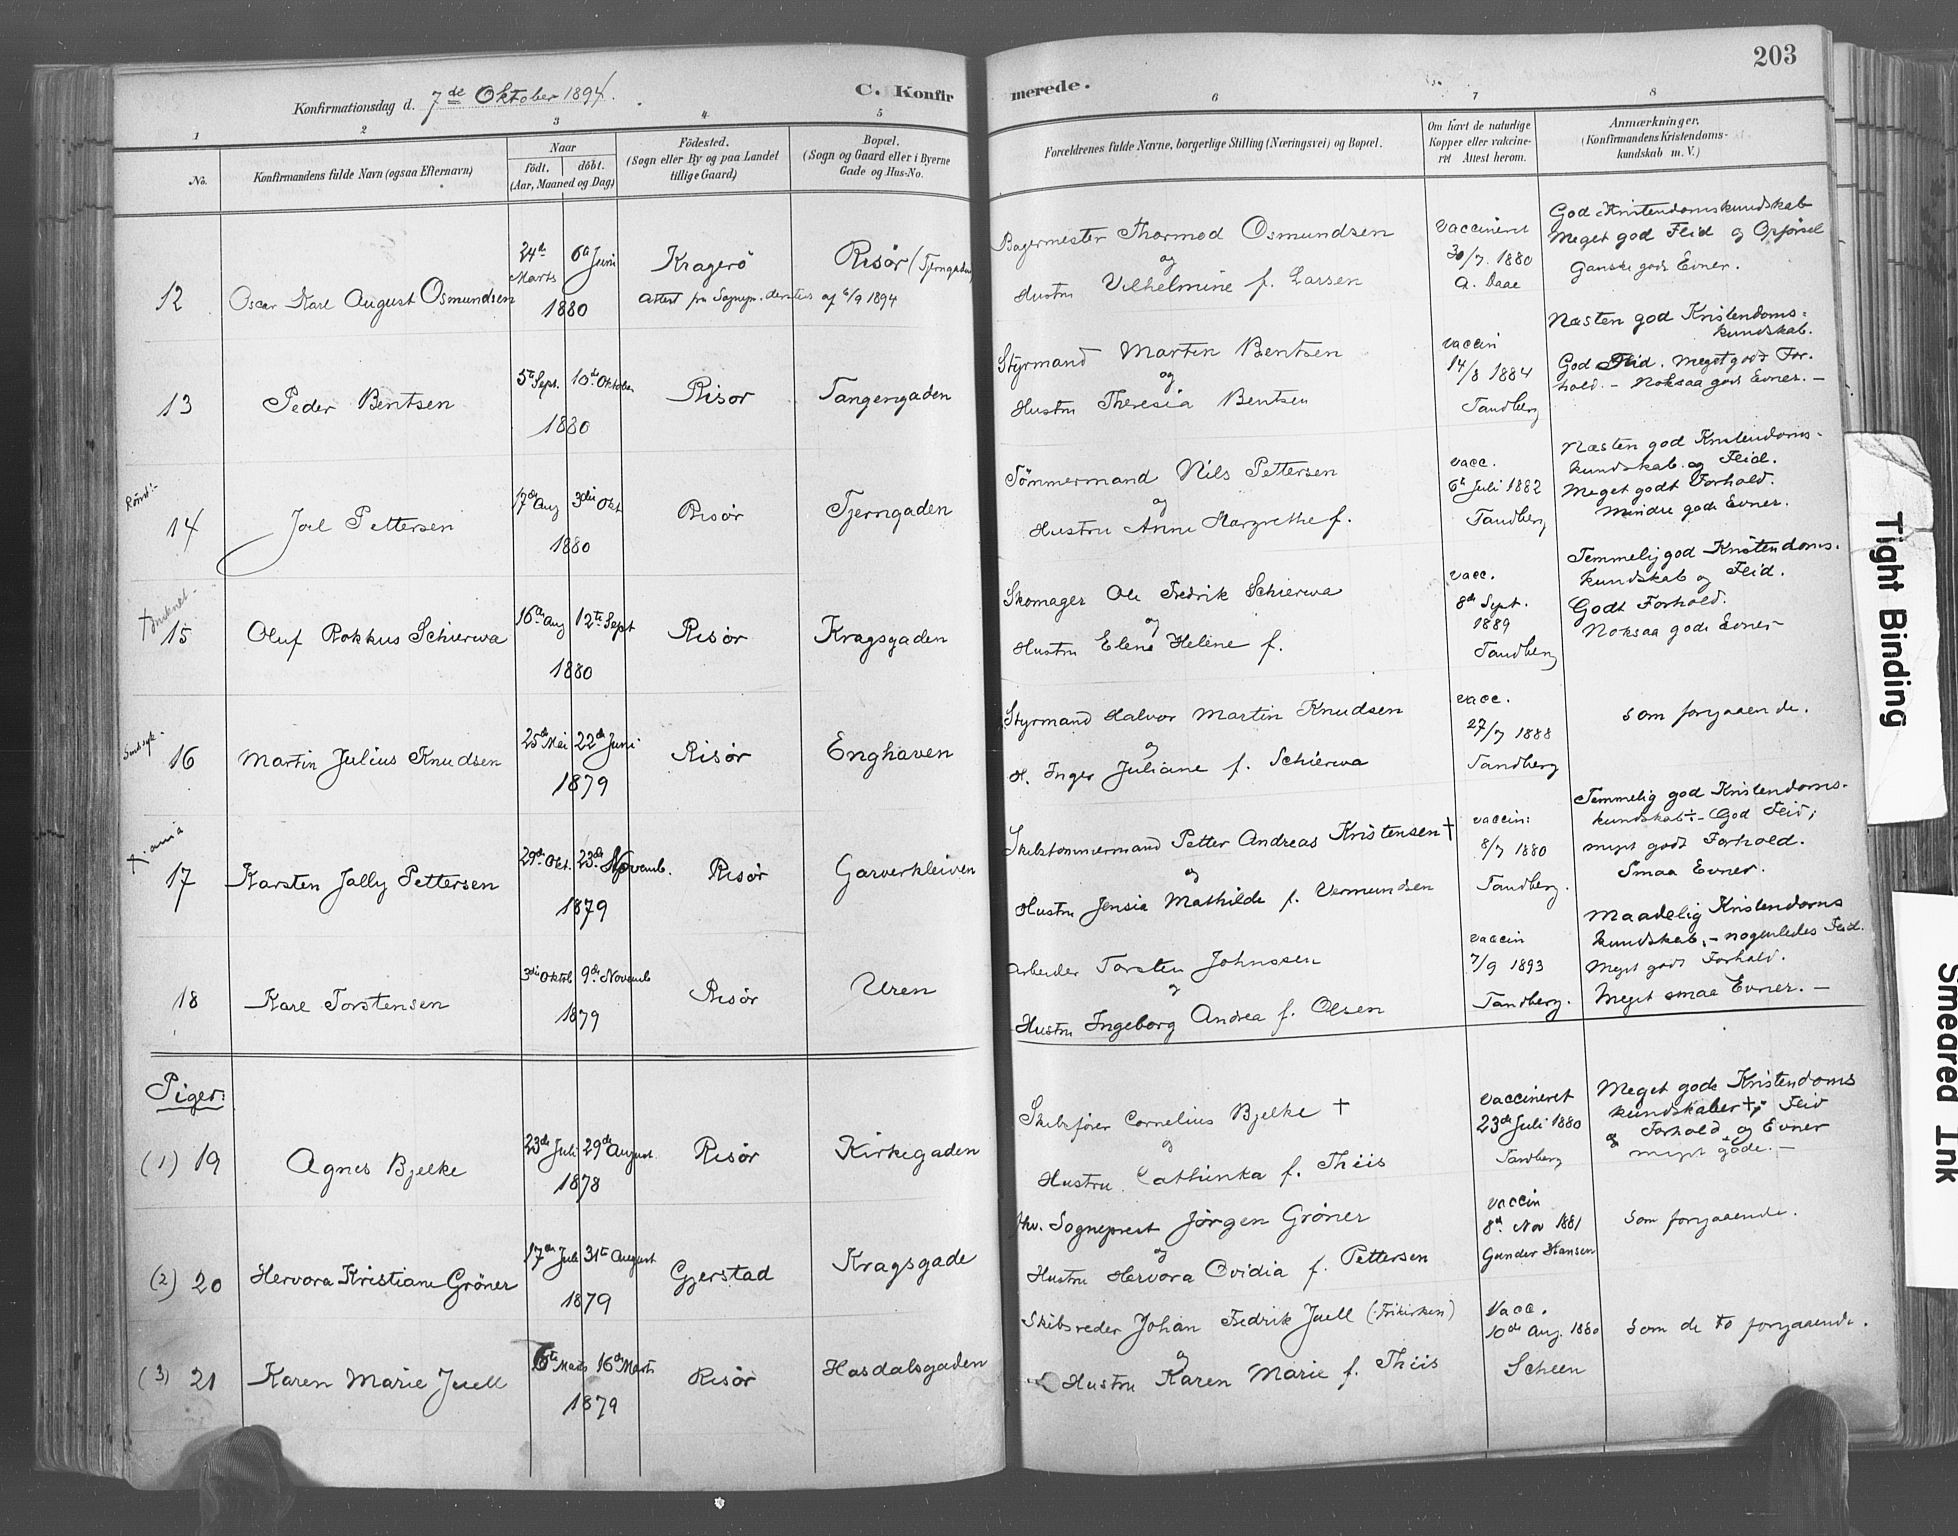 203
Konfirmationsdag d. 7de Oktober 1894.
C. Konfirmerede.
1 2 3 4 5 6 7 8
No.
Konfirmandens fulde Navn (ogsaa Efternavn)
Naar
født. døbt.
(Aar, Maaned og Dag)
Födested.
(Sogn eller By og paa Landet
tillige Gaard)
Bopæl.
(Sogn og Gaard eller i Byerne
Gade og Hus-No.
Forældrenes fulde Navne, borgerlige Stilling (Næringsvei) og Bopæl.
Om havt de naturlige
Kopper eller vakcine-
ret Attest herom.
Anmærkninger,
(Konfirmandens Kristendoms-
kundskab m. V.)
12 Oscar Karl August Osmundsen
24de Marts 6te Juni
1880
Kragerö
Risør (Tjerngaden
Attest fra Sognepr. dersteds af 6/9 1894
Bagermester Thormod Osmundsen
og
Hustru Vilhelmine f. Larsen
Vaccineret
30/7. 1880
A. Daae
God Kristendomskundskab
Meget god Flid og Opførsel
Ganske gode Evner.
13 Peder Bentsen
5te Sept. 10de Oktober
1880
Risør
Tangengaden
Styrmand Martin Bentsen
og
Hustru Theresia Bentsen
vaccin
14/8 1884
Tandberg
Næsten god Kristendoms-
kundskab.
God Flid. Meget godt For-
hold. - Noksaa gode Evner. -
14 Joel Pettersen
17de Aug 3die Okt
1880
Risør
Tjerngaden
Tömmermand Nils Pettersen
og
Hustru Anne Margrethe f.
vacc.
6te Juli 1882
Tandberg
Næsten god Kristendoms-
kundskab og Flid.
Meget godt Forhold.
Mindre gode Evner.
15 Oluf Rokkus Schierwa
16de Aug 12te Sept
1880
Risør
Kragsgaden
Skomager Ole Fredrik Schierwa
og
Hustru Elene Helene f.
vacc.
8de Sept.
1889
Tandberg
Temmelig god Kristendoms-
kundskab og Flid.
Godt Forhold.
Noksaa gode Evner
16 Martin Julius Knudsen
25de Mai 22de Juni
1879
Risør
Enghaven
Styrmand Halvor Martin Knudsen
og
H. Inger Juliane f. Schierwa
vacc.
27/7 1888
Tandberg
Som forgaaende.
X.ania
17 Karsten Jally Pettersen
29de Okt. 23de Novemb.
1879
Risør
Garverkleiven
Skibstömmermand Petter Andreas Kristensen †
og
Hustru Jensia Mathilde f. Vermundsen
vaccin:
8/7 1880
Tandberg.
Temmelig god Kristendoms-
kundskab - God Flid;
meget godt Forhold.
Smaa Evner.
18 Karl Torstensen
3die Oktob 9de Novemb
1879
Risør
Uren
Arbeider Torsten Johnssen
og
Hustru Ingeborg Andrea f. Olsen
vaccin
7/9 1893
Tandberg.
Maadelig Kristendoms
kundskab, - nogenledes Flid.
Meget godt Forhold.
Meget smaa Evner. -
Piger:
(1) 19 Agnes Bjelke
23de Juli 29de August
1878
Risør
Kirkegaden
Skibsfører Cornelius Bjelke †
og
Hustru Cathinka f. Thiis
Vaccineret
23de Juli 1880
Tandberg
Meget gode Kristendoms
kundskaber, Flid
Forhold og Evner
meget gode. -
(2) 20 Hervora Kristiane Gröner
17de Juli 31te August
1879
Gjerstad
Kragsgade
fhv. Sogneprest Jörgen Gröner
og
Hustru Hervora Ovidia f. Pettersen
vaccin
8de Nov 1881
Gunder Hansen
Som forgaaende.
(3) 21 Karen Marie Juell
6te Marts 16de Marts
1879
Risør
Hasdalsgaden
Skibsreder Johan Fredrik Juell (Frikirken)
og
Hustru Karen Marie f. Thiis
Vacc.
10de Aug. 1880
Scheen
Som de to forgaaende.
Tight Binding
Smeared Ink